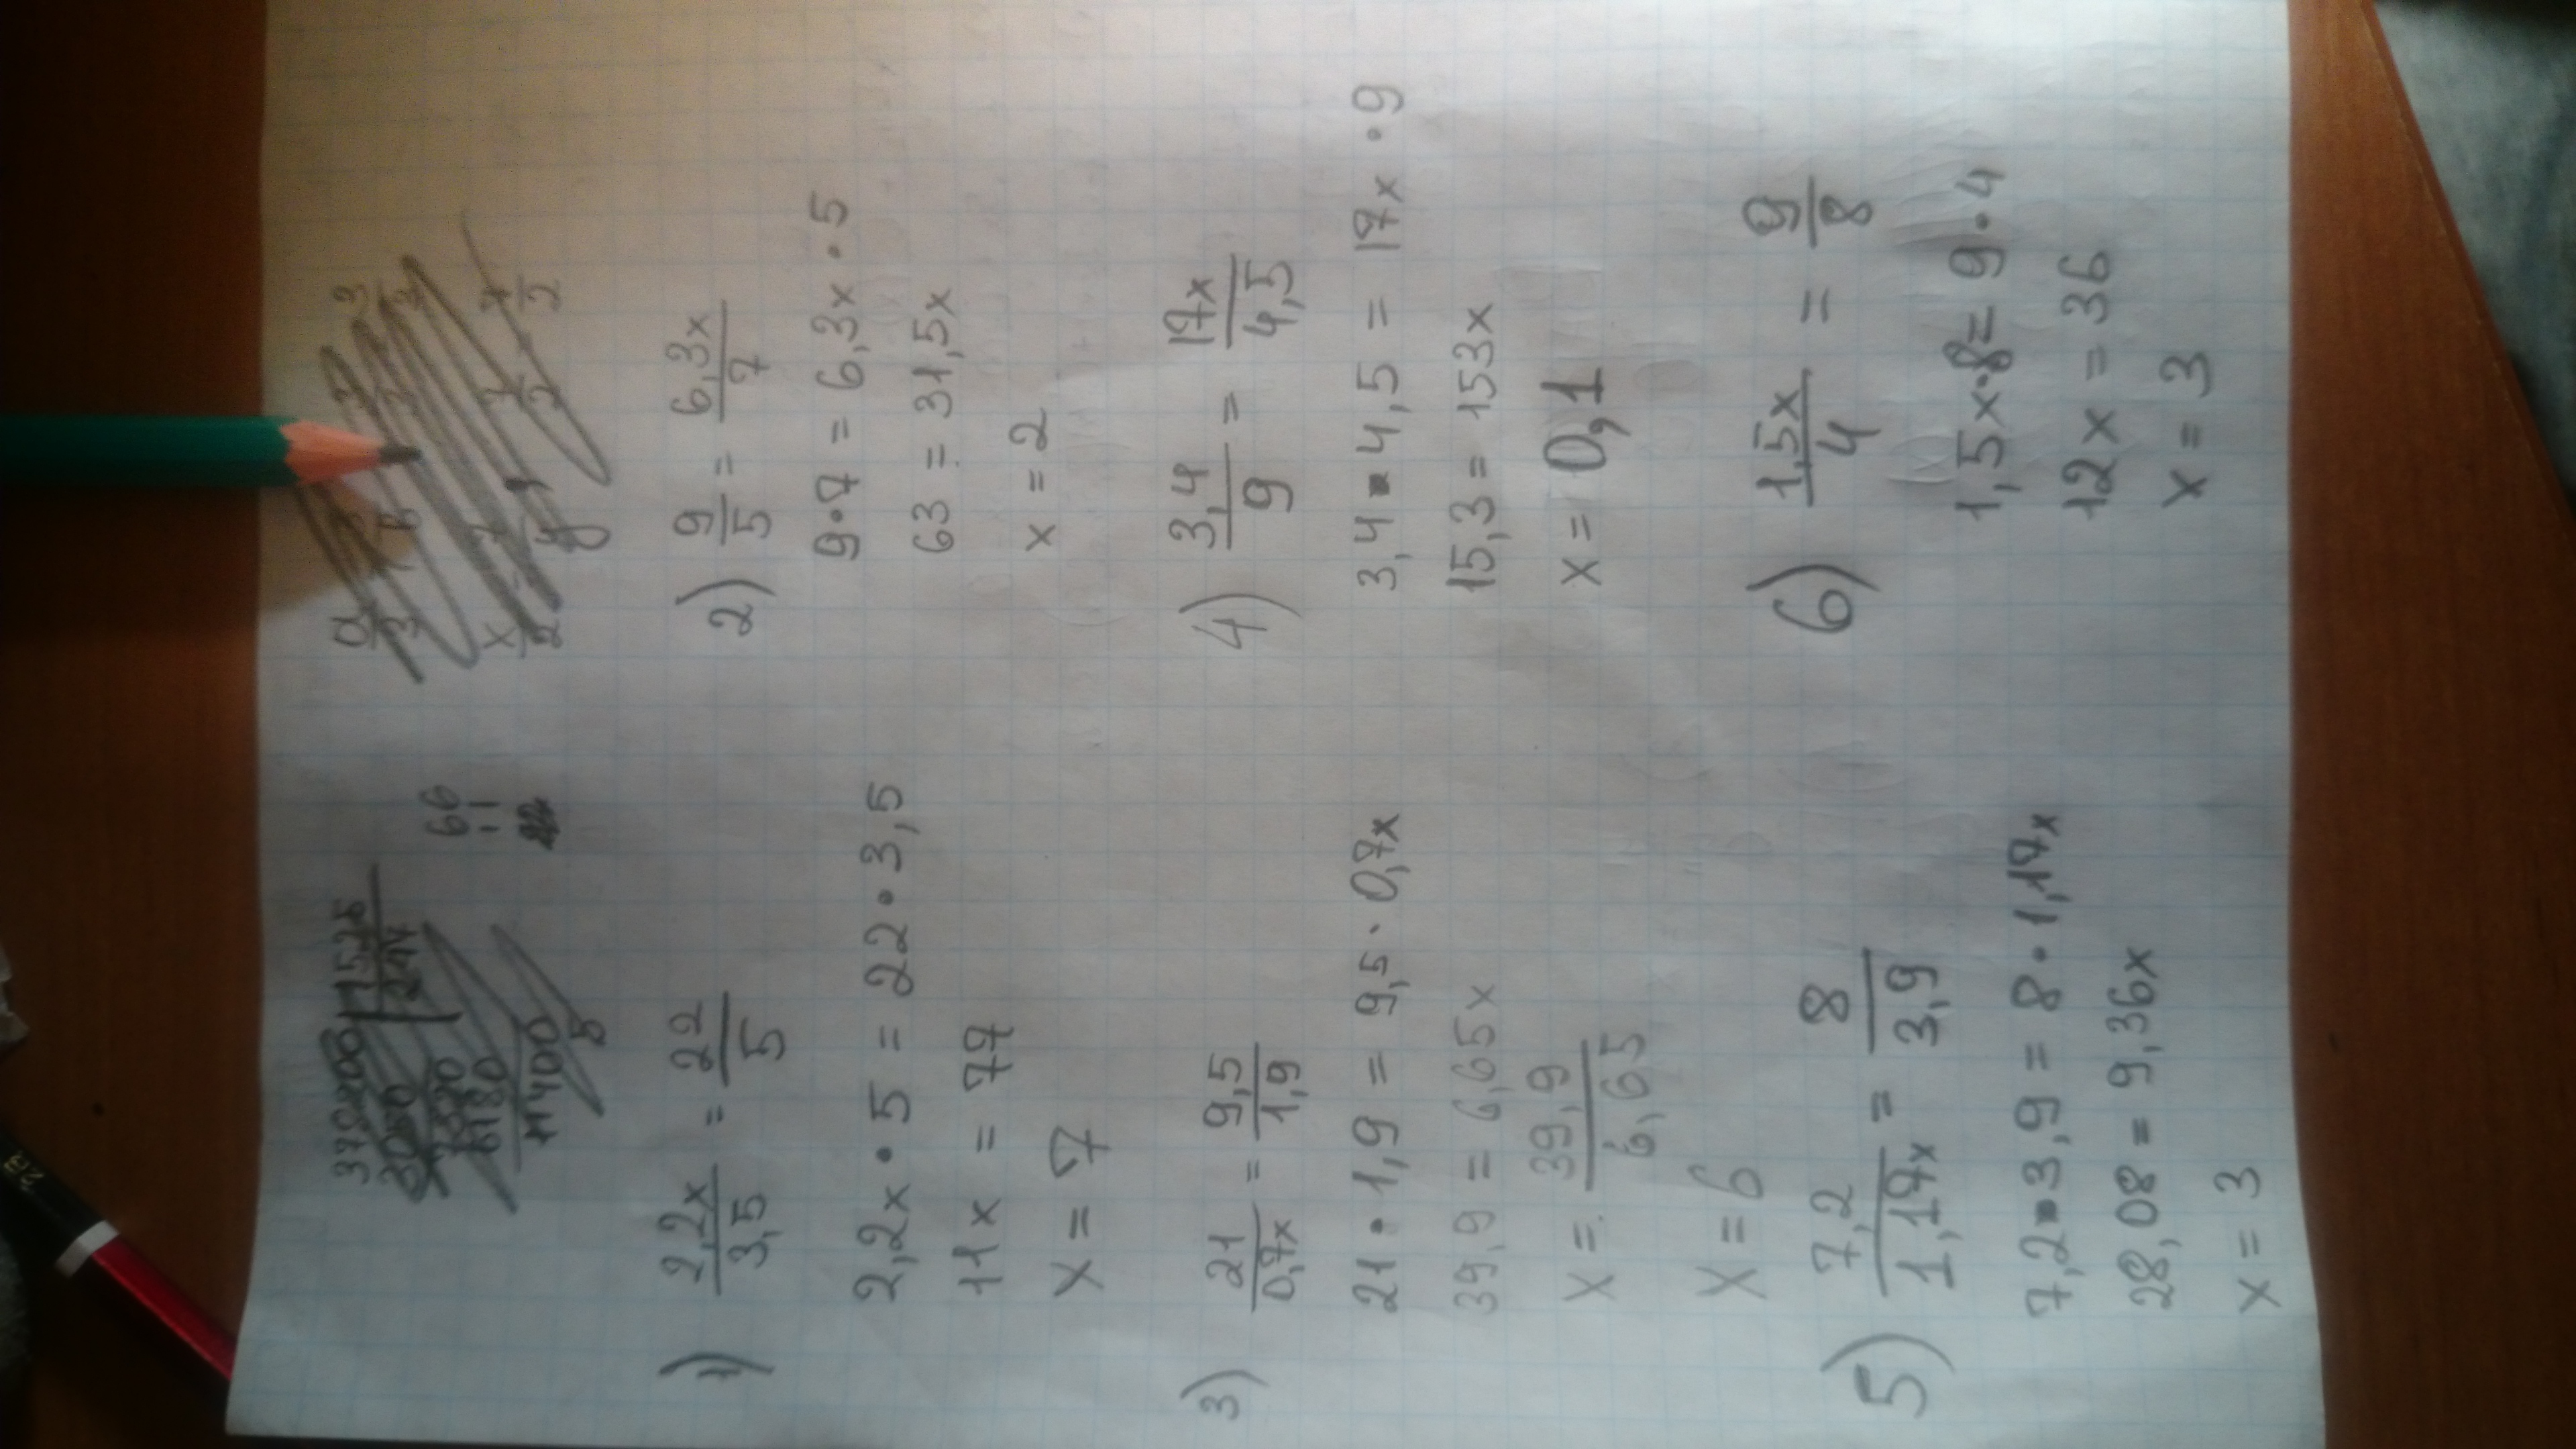 66
11
1) 2,2x/3,5 = 22/5
2,2x · 5 = 22 · 3,5
11x = 77
x = 7
2) 9/5 = 6,3x/7
9·7 = 6,3x · 5
63 = 31,5x
x = 2
3) 21/0,7x = 9,5/1,9
21 · 1,9 = 9,5 · 0,7x
39,9 = 6,65x
x = 39,9/6,65
x = 6
4) 3,4/9 = 17x/4,5
3,4 · 4,5 = 17x · 9
15,3 = 153x
x = 0,1
5) 7,2/1,17x = 8/3,9
7,2 · 3,9 = 8 · 1,17x
28,08 = 9,36x
x = 3
6) 1,5x/4 = 9/8
1,5x·8 = 9·4
12x = 36
x = 3